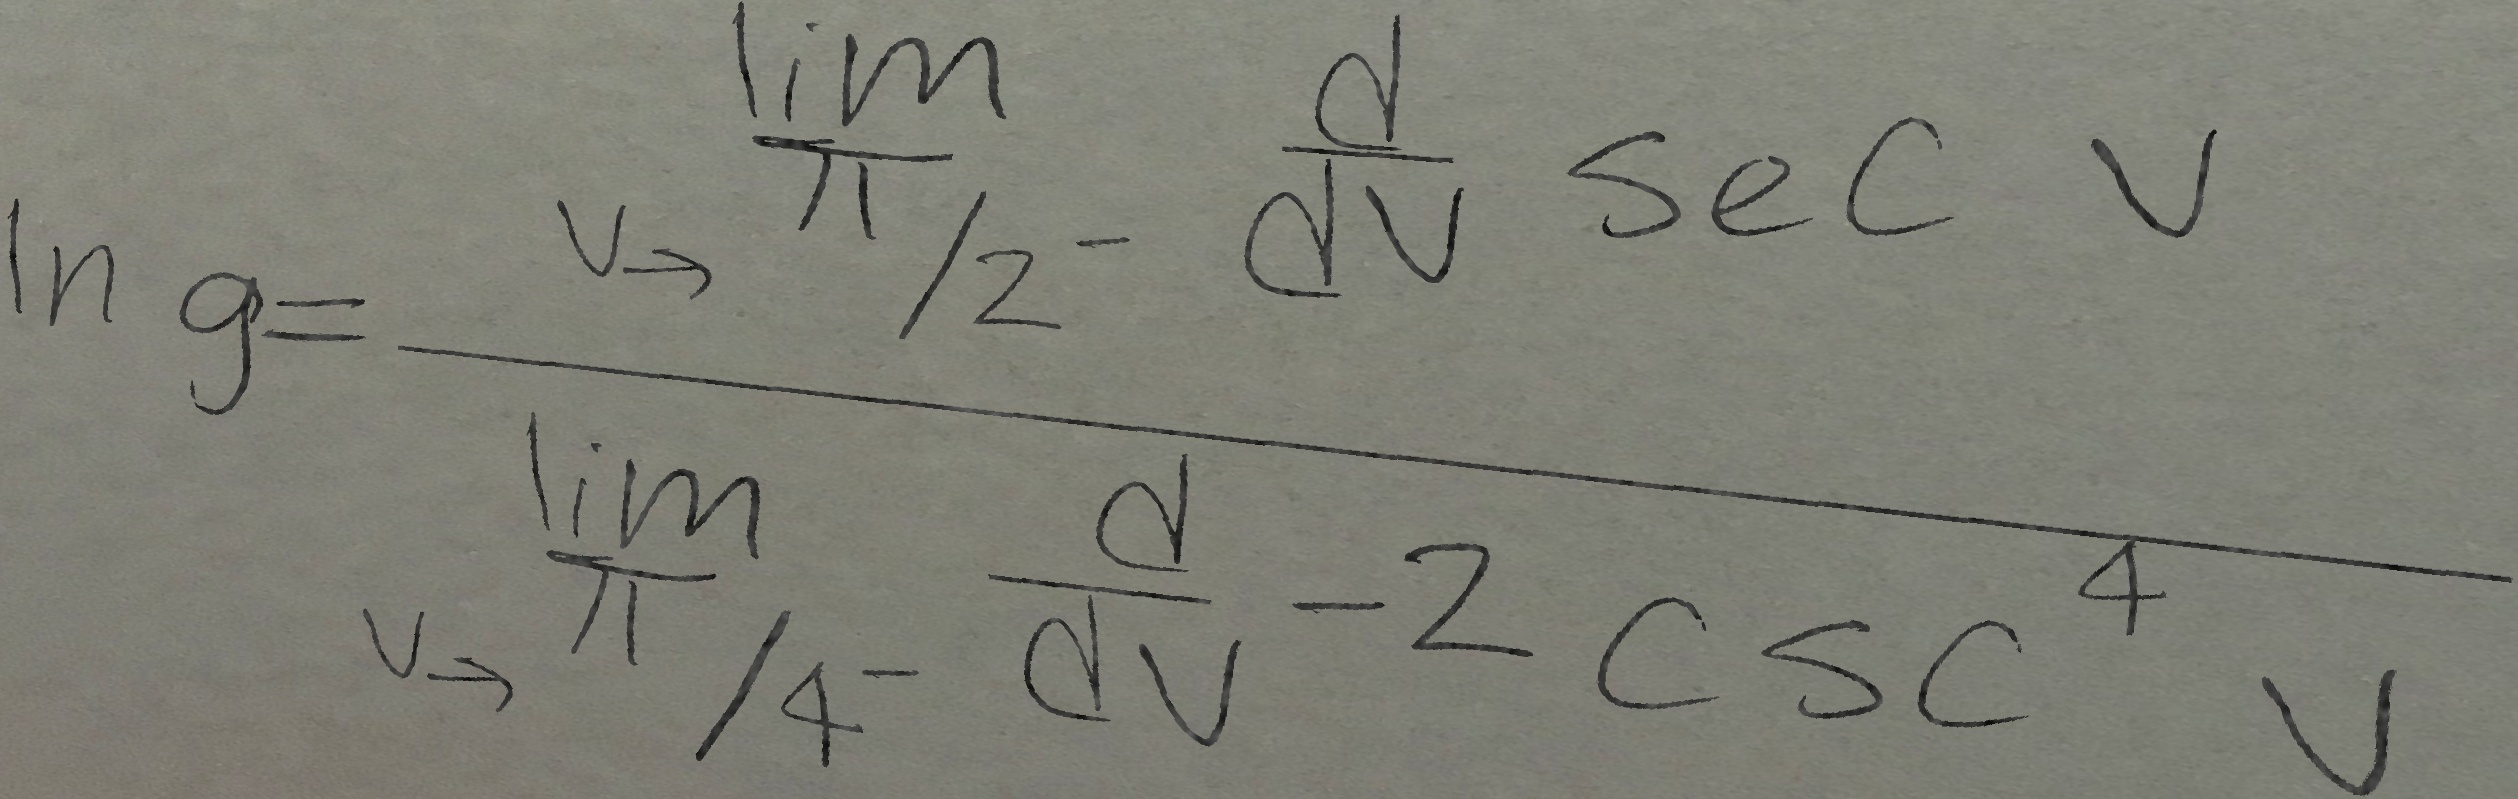 ln g = \frac{\lim_{v \to \pi/2^-} \frac{d}{dv} \sec v}{\lim_{v \to \pi/4^-} \frac{d}{dv} -2 \csc^4 v}